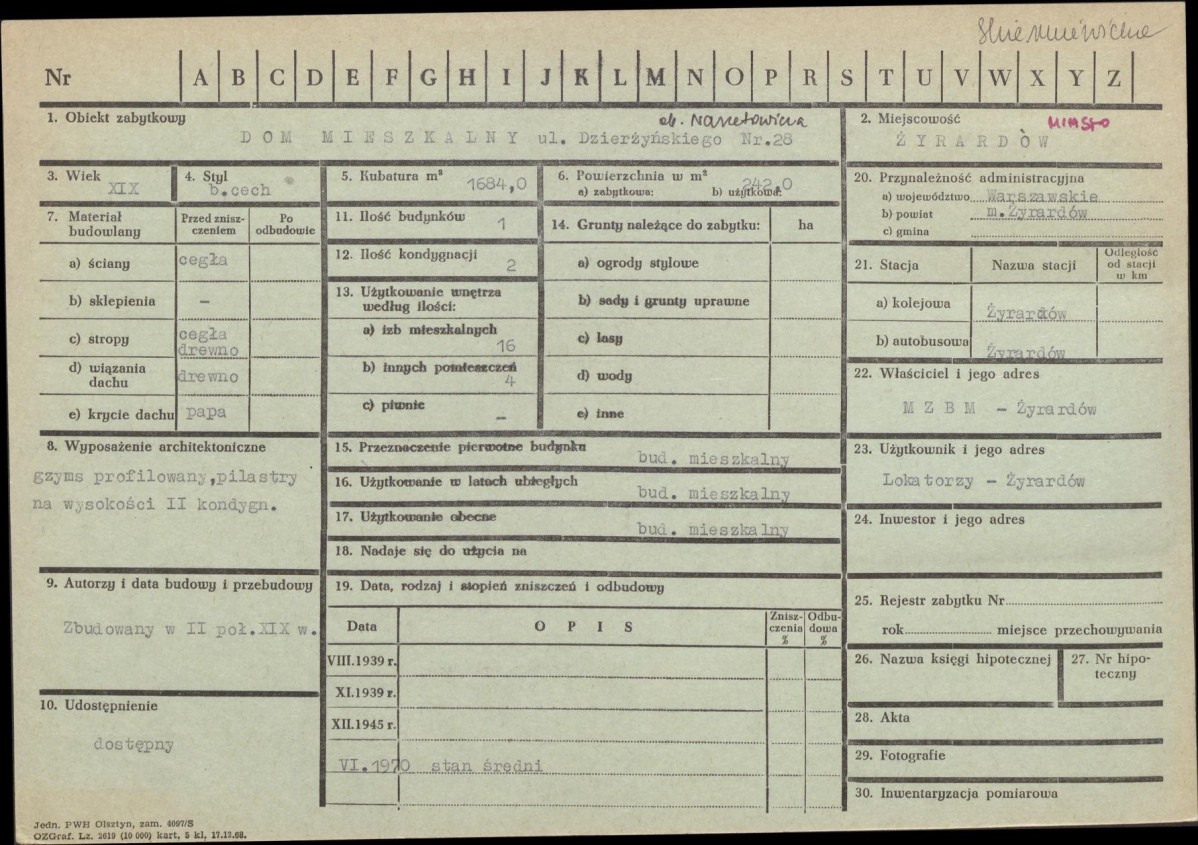 Skierniewickie
Nr A B C D E F G H I J K L M N O P R S T U V W X Y Z
1. Obiekt zabytkowy
ob. Narutowicza
DOM MIESZKALNY ul. Dzierżyńskiego Nr.28
2. Miejscowość
MIASTO
ŻYRARDÓW
3. Wiek
XIX
4. Styl
b.cech
5. Kubatura m³
1684,0
6. Powierzchnia w m²
a) zabytkowa: b) użytkowa:
242,0
20. Przynależność administracyjna
a) województwo Warszawskie
b) powiat m.Żyrardów
c) gmina
7. Materiał budowlany
Przed zniszczeniem
Po odbudowie
a) ściany cegła
b) sklepienia –
c) stropy cegła drewno
d) wiązania dachu drewno
e) krycie dachu papa
11. Ilość budynków 1
12. Ilość kondygnacji 2
13. Użytkowanie wnętrza według ilości:
a) izb mieszkalnych 16
b) innych pomieszczeń 4
c) piwnic –
14. Grunty należące do zabytku: ha
a) ogrody stylowe
b) sady i grunty uprawne
c) lasy
d) wody
e) inne
21. Stacja
Nazwa stacji
Odległość od stacji w km
a) kolejowa Żyrardów
b) autobusowa Żyrardów
22. Właściciel i jego adres
MZBM – Żyrardów
8. Wyposażenie architektoniczne
gzyms profilowany,pilastry
na wysokości II kondygn.
15. Przeznaczenie pierwotne budynku
bud. mieszkalny
16. Użytkowanie w latach ubiegłych
bud. mieszkalny
17. Użytkowanie obecne
bud. mieszkalny
18. Nadaje się do użycia na
23. Użytkownik i jego adres
Lokatorzy – Żyrardów
24. Inwestor i jego adres
9. Autorzy i data budowy i przebudowy
Zbudowany w II poł.XIX w.
19. Data, rodzaj i stopień zniszczeń i odbudowy
Data OPIS Zniszczenia % Odbudowa %
VIII.1939 r.
XI.1939 r.
XII.1945 r.
VI.1970 stan średni
25. Rejestr zabytku Nr
rok miejsce przechowywania
26. Nazwa księgi hipotecznej
27. Nr hipoteczny
10. Udostępnienie
dostępny
28. Akta
29. Fotografie
30. Inwentaryzacja pomiarowa
Jedn. PWH Olsztyn, zam. 4097/S
OZGraf. Lz. 2619 (10 000) kart, 5 kl, 17.12.68.